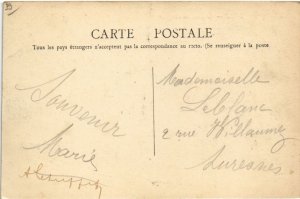 CARTE POSTALE
Tous les pays étrangers n'acceptent pas la correspondance au recto. (Se renseigner à la poste
Souvenir
Marie
Mademoiselle
Leblanc
2 rue Villaumez
Suresnes